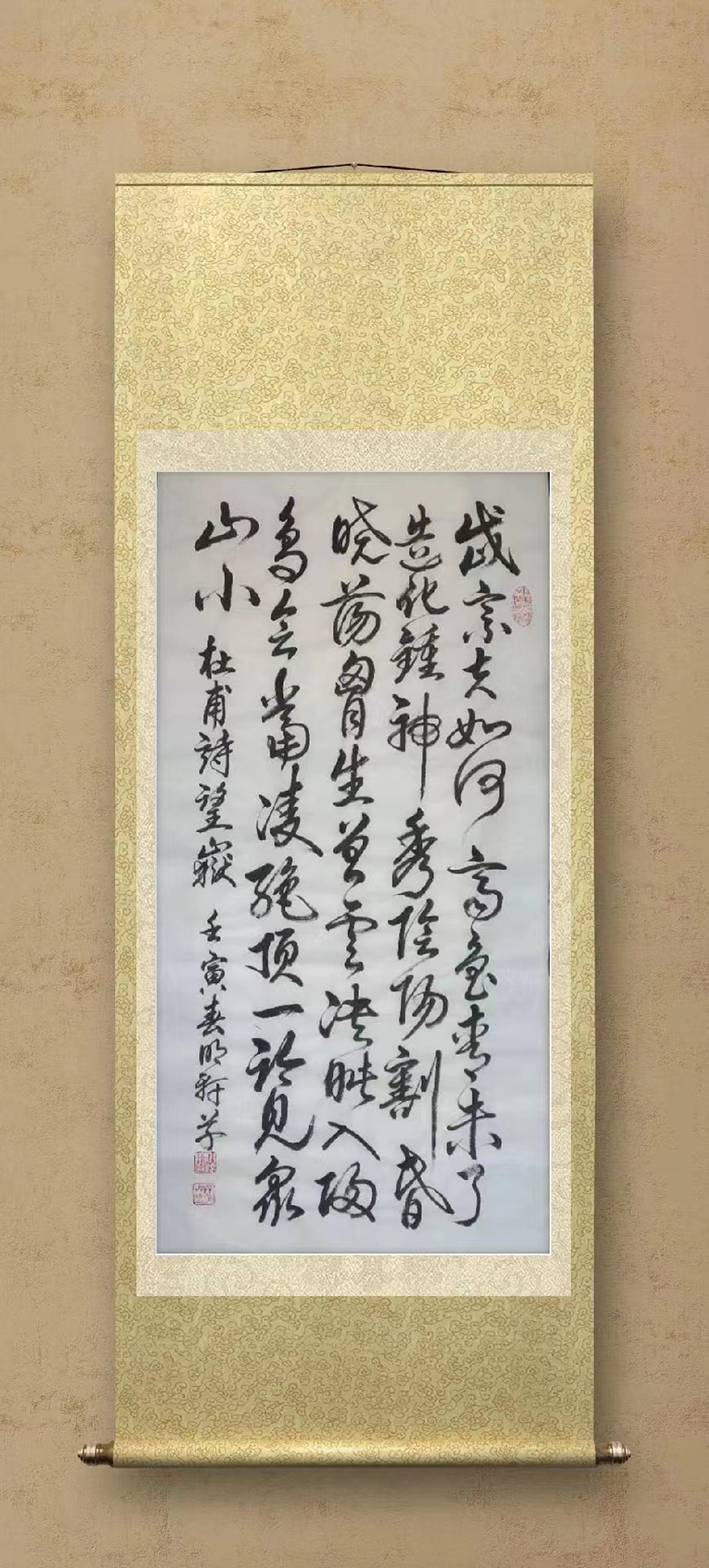 岱宗夫如何齊魯青未了
造化鍾神秀陰陽割昏
曉蕩胷生曾雲决眦入歸
鳥會當凌絕頂一覽衆
山小 杜甫詩望嶽 壬寅春明軒